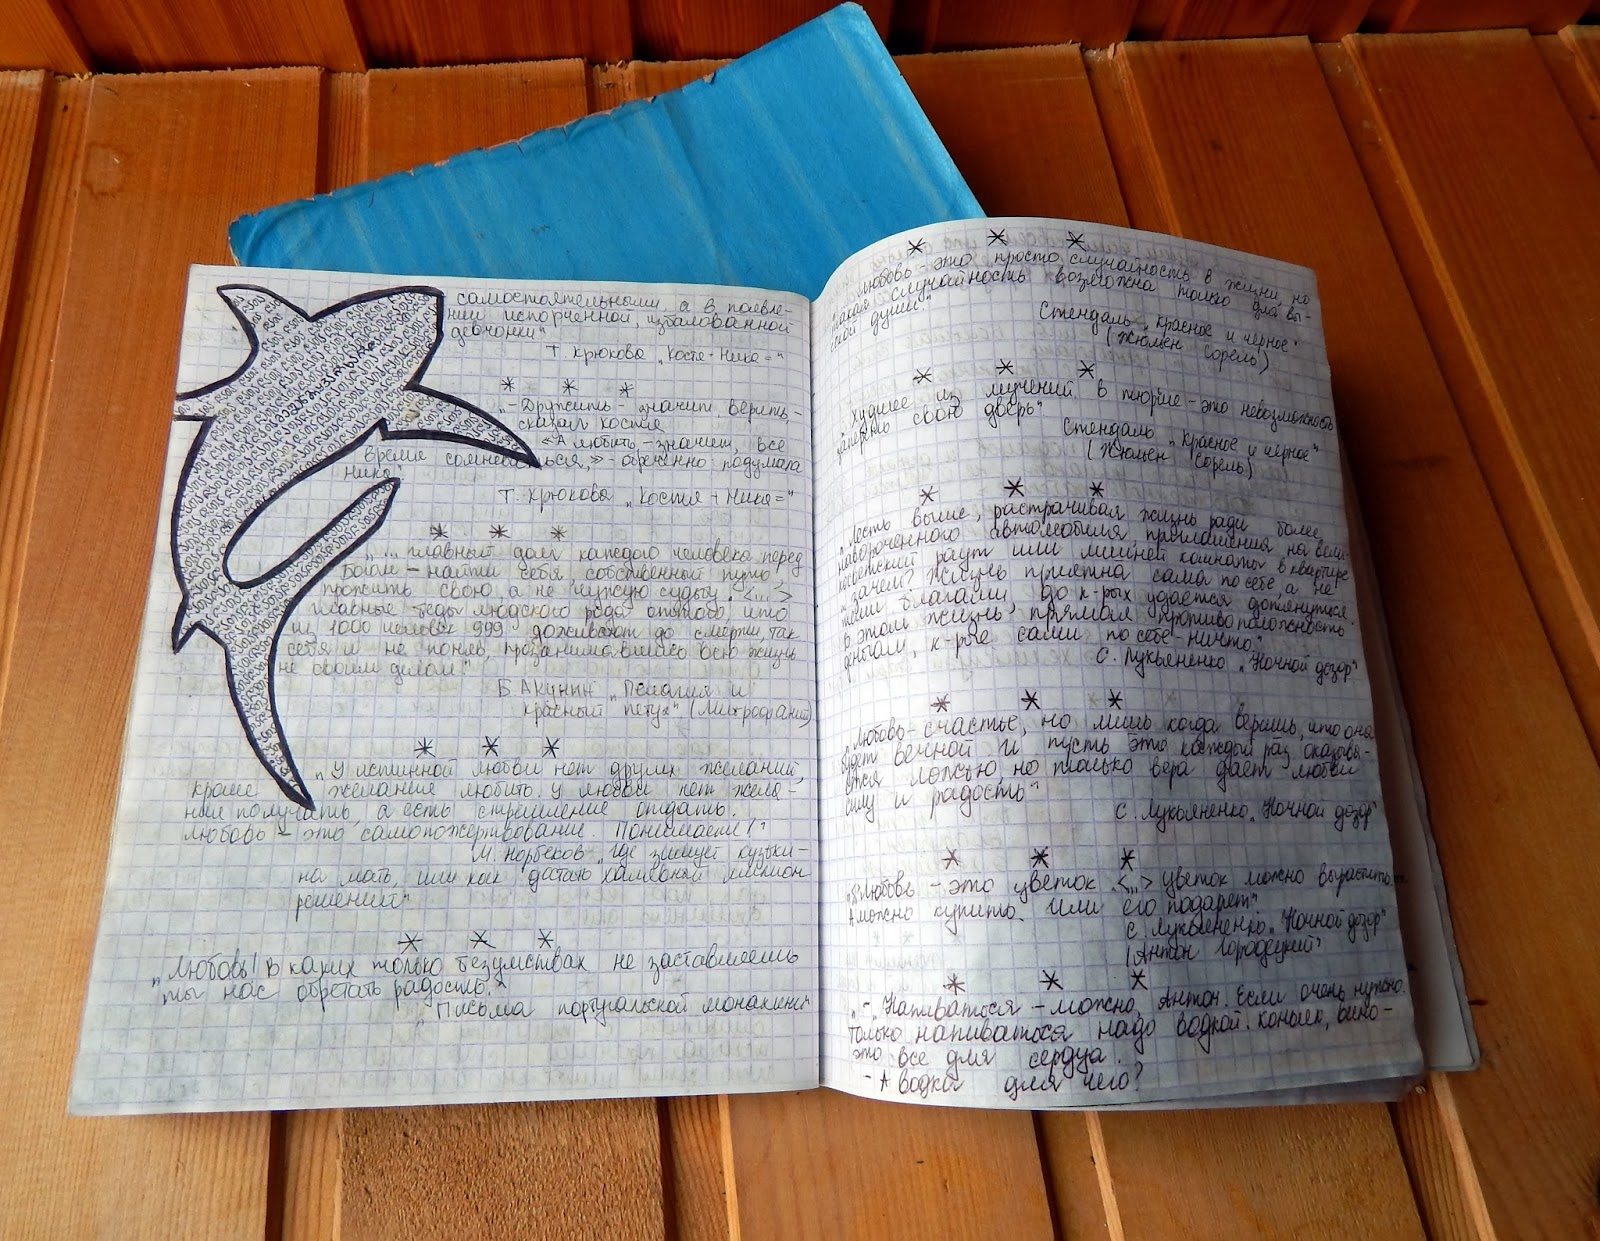 самостоятельными, а в появле-
нии испорченной, избалованной
девчонки"
Т. Крюкова „Костя + Ника ="
* * *
„- Дружить - значит верить, -
сказал Костя
«А любить - значит, все
время сомневаться,» - обреченно подумала
Ника"
Т. Крюкова „Костя + Ника ="
* * *
„... главный долг каждого человека перед
Богом - найти себя, собственный путь,
прожить свою, а не чужую судьбу. <...>
главные беды людского рода оттого, что
из 1000 человек 999 доживают до смерти, так
себя и не поняв, прозанимавшись всю жизнь
не своим делом."
Б. Акунин „Пелагия и
красный петух" (Митрофаний)
* * *
„У истинной любви нет других желаний,
кроме желание любить. У любви нет жела-
ние получать, а есть стремление отдать.
Любовь - это самопожертвование. Понимаете!"
М. Норбеков „Где зимует кузьки-
на мать, или как достать халявный миллион
решений"
* * *
„Любовь! В каких только безумствах не заставляешь
ты нас обретать радость."
„Письма португальской монахини"
* * *
„Любовь - это просто случайность в жизни, но
такая случайность возможна только для вы-
сокой души."
Стендаль „Красное и черное"
(Жюльен Сорель)
* * *
„Худшее из мучений в тюрьме - это невозможность
запереть свою дверь"
Стендаль „Красное и черное"
(Жюльен Сорель)
* * *
„Лезть выше, растрачивая жизнь ради более
навороченного автомобиля, приглашения на вели-
косветский раут или лишней комнаты в квартире
и зачем? Жизнь приятна сама по себе, а не
теми благами, до к-рых удается дотянуться.
В этом жизнь, прямая противоположность
деньгам, к-рые сами по себе - ничто."
С. Лукьяненко „Ночной дозор"
* * *
„Любовь - счастье, но лишь когда веришь, что она
будет вечной. И пусть это каждый раз оказыва-
ется ложью, но только вера дает любви
силу и радость"
С. Лукьяненко „Ночной дозор"
* * *
„Любовь - это цветок <...> цветок можно вырастить.
А можно купить. Или его подарят"
С. Лукьяненко „Ночной дозор"
(Антон Городецкий)
* * *
„- Напиваться - можно, Антон. Если очень нужно.
Только напиваться надо водкой. Коньяк, вино -
это все для сердца.
- А водка для чего?